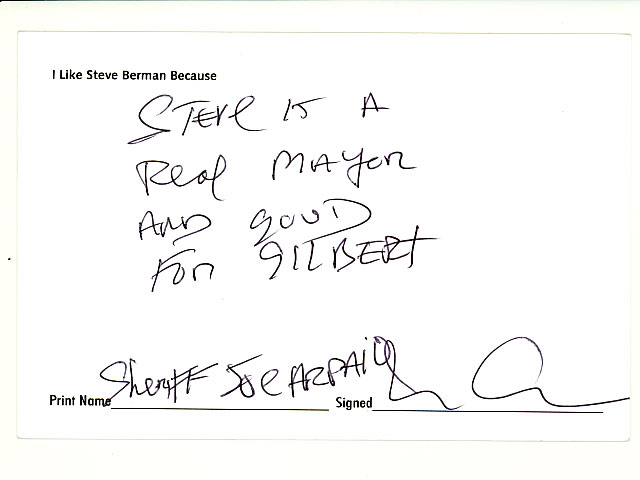 I Like Steve Berman Because
STEVE IS A
Real MAYOR
AND GOOD
FOR GILBERT
Print Name Sheriff JOE ARPAIO Signed